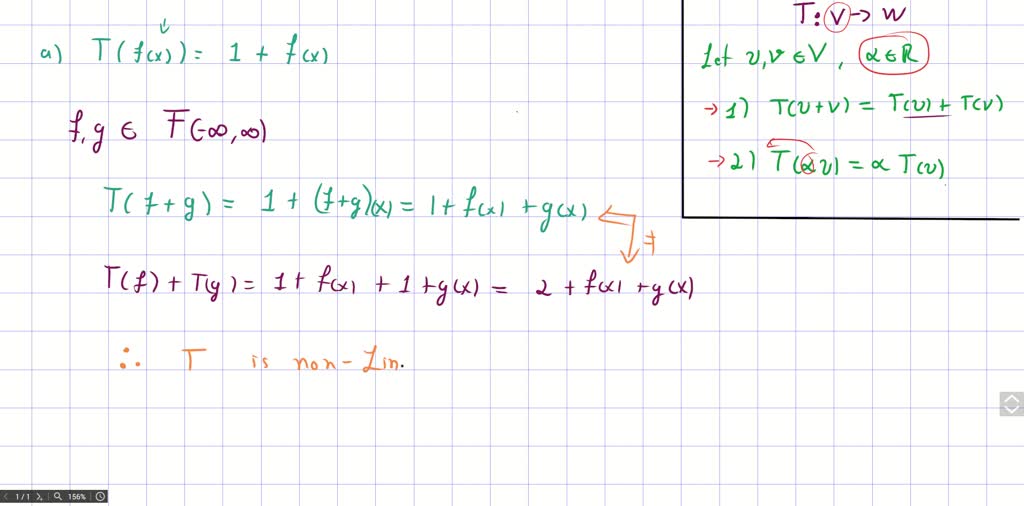 a) T(f(x)) = 1 + f(x)
f,g ∈ F(-∞,∞)
T(f+g) = 1 + (f+g)(x) = 1 + f(x) + g(x)
≠
T(f) + T(g) = 1 + f(x) + 1 + g(x) = 2 + f(x) + g(x)
∴ T is non-Lin.
T: V → W
Let u,v ∈ V, α ∈ R
→ 1) T(u+v) = T(u) + T(v)
→ 2) T(αu) = α T(u)
1/1 156%